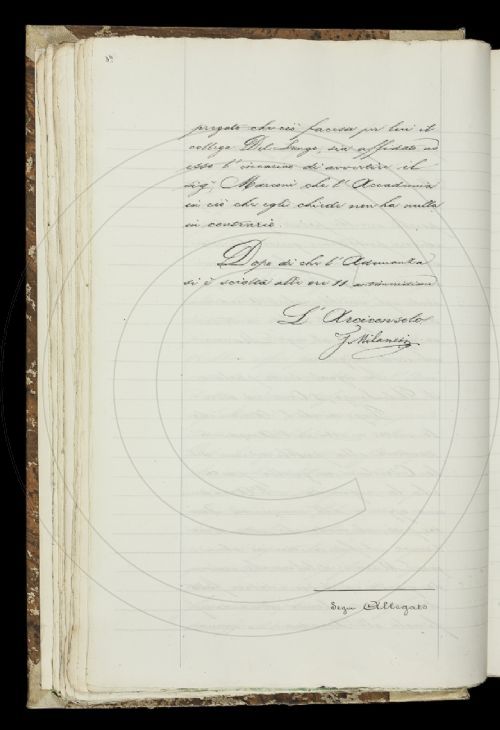 pregato che ciò faccia per lui il
collega Del Lungo, sia affidato ad
esso l'incarico di avvertire il
sig.r Marconi che l'Accademia
in ciò che egli chiede non ha nulla
in contrario.
Dopo di che l'Adunanza
si è sciolta alle ore 11 antimeridiane
L'Arciconsolo
G Milanesi
Segue Allegato